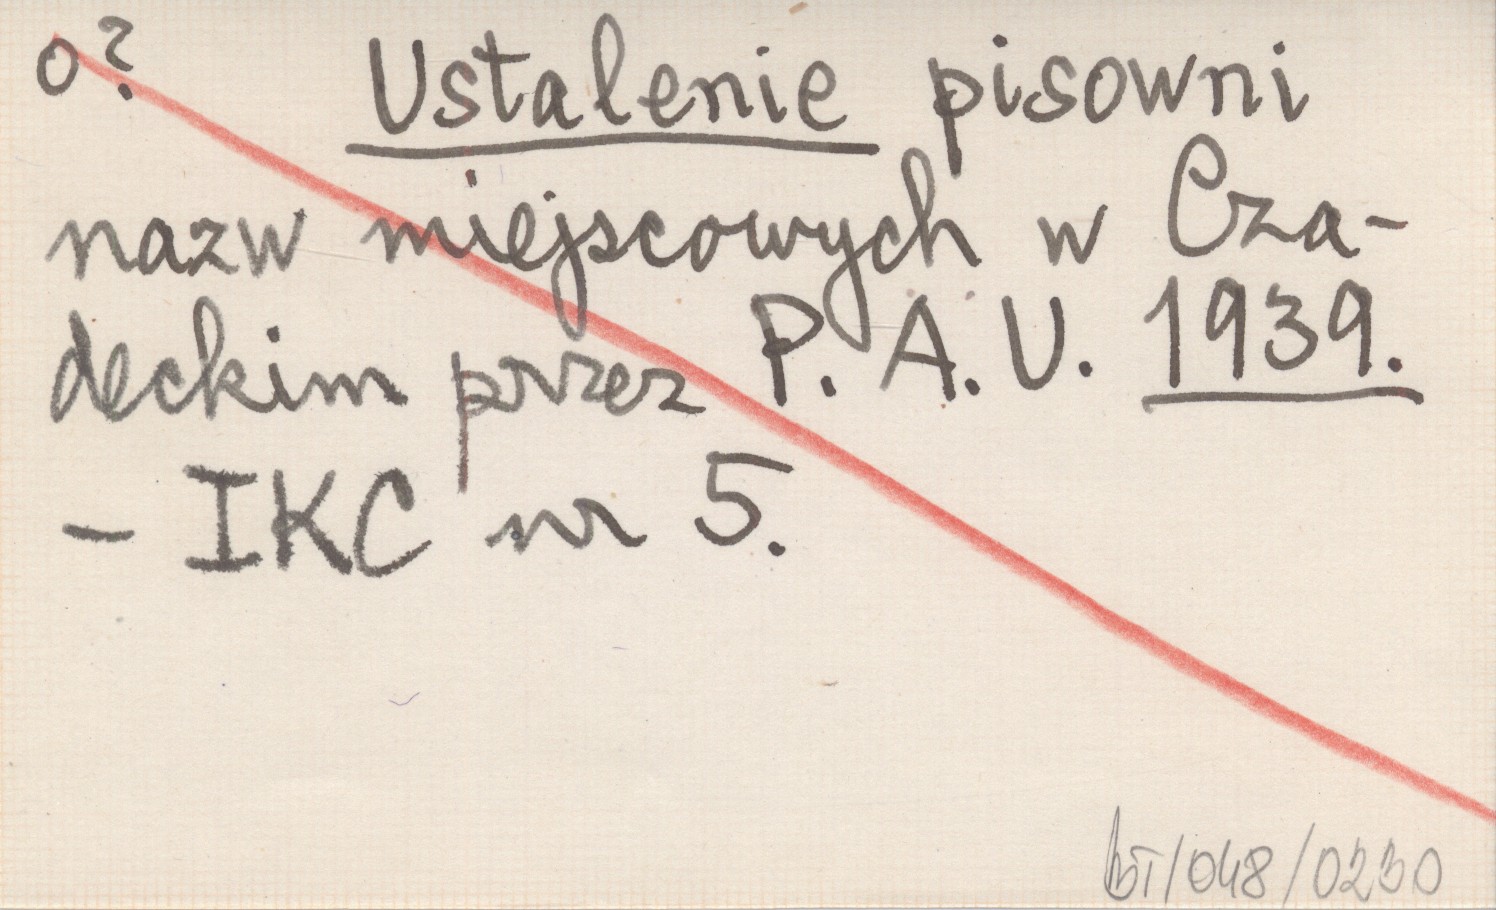 o? Ustalenie pisowni
nazw miejscowych w Cza-
deckim przez P. A. U. 1939.
- IKC nr 5.
/048/0230